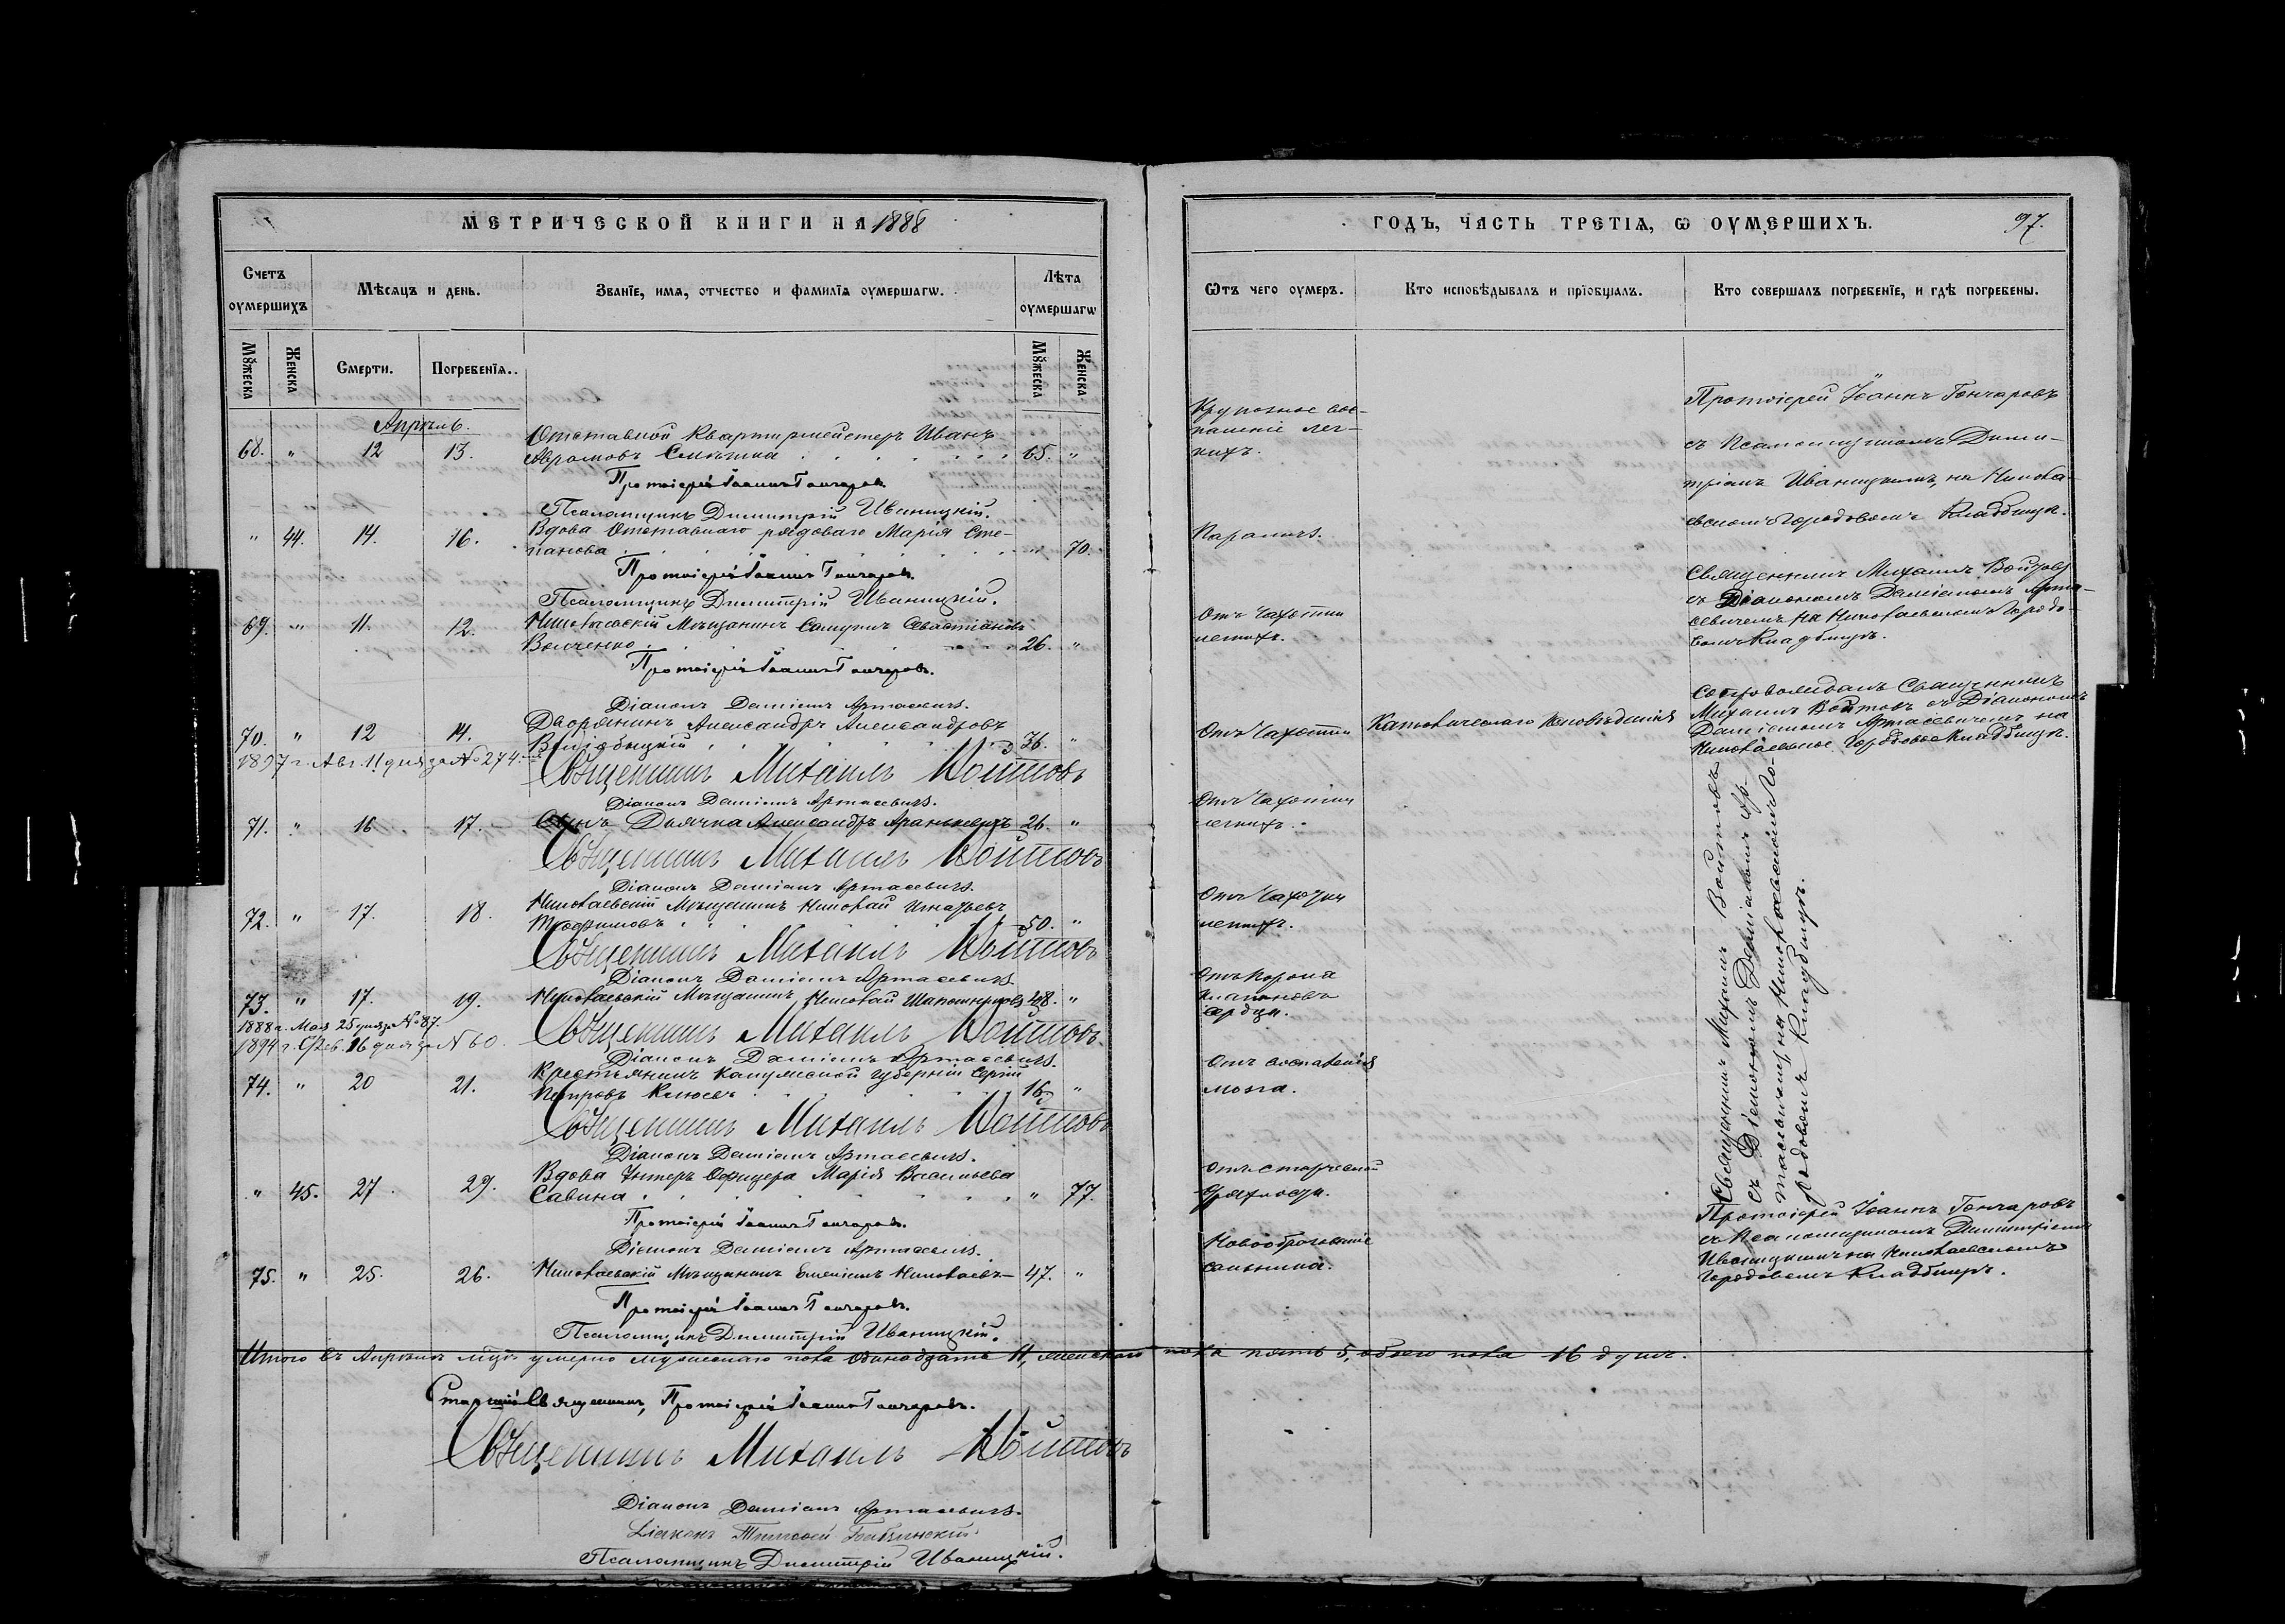 МЕТРИЧЕСКОЙ КНИГИ НА 1888
Счетъ оумершихъ
Мѣсяцъ и день.
Званїе, имя, отчество и фамилїя оумершагѡ.
Лѣта оумершагѡ
Мꙋжеска
Женска
Смерти.
Погребенїя.
Мꙋжеска
Женска
Апрѣль.
68. " 12 13. Отставной Квартирмейстеръ Иванъ
Аврамовъ 65. "
Протоіерей Іоаннъ Гончаровъ.
Псаломщикъ Димитрій Иваницкій.
" 44. 14. 16. Вдова Отставнаго рядоваго Марія Сте-
панова " 70.
Протоіерей Іоаннъ Гончаровъ.
Псаломщикъ Димитрій Иваницкій.
69. " 11. 12. Николаевскій Мѣщанинъ Самуилъ Севастіановъ
26. "
Протоіерей Іоаннъ Гончаровъ.
Діаконъ Даміанъ Артасевичъ.
70. " 12 14. Дворянинъ Александръ Александровъ
36. "
1897 г. Авг. 11 дня за № 274.
Священникъ Михаилъ Войтовъ
Діаконъ Даміанъ Артасевичъ.
71. " 16 17. Сынъ Дьячка Александръ 26. "
Священникъ Михаилъ Войтовъ
Діаконъ Даміанъ Артасевичъ.
72. " 17. 18. Николаевскій Мѣщанинъ Николай Игнатьевъ
Трофимовъ 50. "
Священникъ Михаилъ Войтовъ
Діаконъ Даміанъ Артасевичъ.
73. " 17. 19. Николаевскій Мѣщанинъ Николай Шапошниковъ 48. "
1888 г. Мая 25 дня за № 87.
1894 г. Фев. 16 дня за № 60.
Священникъ Михаилъ Войтовъ
Діаконъ Даміанъ Артасевичъ.
74. " 20 21. Крестьянинъ Калужской губерніи Сергій
Петровъ Клюевъ 16. "
Священникъ Михаилъ Войтовъ
Діаконъ Даміанъ Артасевичъ.
" 45. 27. 29. Вдова Унтеръ Офицера Марія Васильева
Савина " 77.
Протоіерей Іоаннъ Гончаровъ.
Діаконъ Даміанъ Артасевичъ.
75. " 25. 26. Николаевскій Мѣщанинъ Николаевъ 47. "
Протоіерей Іоаннъ Гончаровъ.
Псаломщикъ Димитрій Иваницкій.
Итого въ Апрѣлѣ м-цѣ умерло мужескаго пола одинадцать 11, женскаго пола пять 5, обоего пола 16 душъ.
Старшій Священникъ, Протоіерей Іоаннъ Гончаровъ.
Священникъ Михаилъ Войтовъ
Діаконъ Даміанъ Артасевичъ.
Діаконъ Тимофей
Псаломщикъ Димитрій Иваницкій.
ГОДЪ, ЧАСТЬ ТРЕТІЯ, Ѡ ОУМЕРШИХЪ. 97.
Ѿтъ чего оумеръ.
Кто исповѣдывалъ и прїобщалъ.
Кто совершалъ погребенїе, и гдѣ погребены.
Крупозное вос-
паленіе лег-
кихъ.
Протоіерей Іоаннъ Гончаровъ
съ Псаломщикомъ Дими-
тріемъ Иваницкимъ, на Никола-
евскомъ Городовомъ Кладбищѣ.
Параличъ.
Отъ Чахотки
легкихъ.
Священникъ Михаилъ Войтовъ
съ Діакономъ Даміаномъ Арта-
севичемъ на Николаевскомъ Городо-
вомъ Кладбищѣ.
Отъ Чахотки
Католическаго Исповѣданія
Сопровождалъ Священникъ
Михаилъ Войтовъ съ Діакономъ
Даміаномъ Артасевичемъ на
Николаевское Городовое Кладбище.
Отъ Чахотки
легкихъ.
Отъ Чахотки
легкихъ.
Отъ порока
клапановъ
сердца.
Отъ воспаленія
мозга.
Священникъ Михаилъ Войтовъ
съ Діакономъ Даміаномъ Ар-
тасевичемъ, на Николаевскомъ Го-
родовомъ Кладбищѣ.
Отъ старческой
дряхлости.
Новообразованіе
сальника.
Протоіерей Іоаннъ Гончаровъ
съ Псаломщикомъ Димитріемъ
Иваницкимъ на Николаевскомъ
Городовомъ Кладбищѣ.